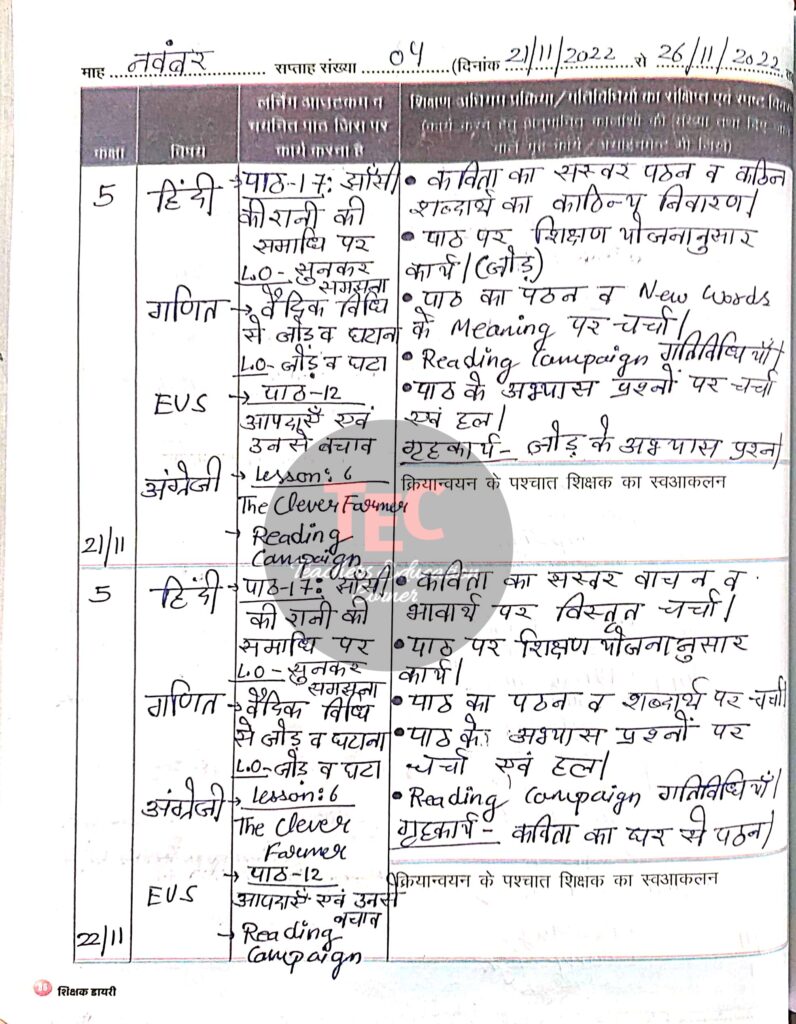 माह नवंबर सप्ताह संख्या 04 (दिनांक 21/11/2022 से 26/11/2022
कक्षा
विषय
लर्निंग आउटकम व
चयनित पाठ जिस पर
कार्य करना है
शिक्षण अधिगम प्रक्रिया/गतिविधियों का संक्षिप्त एवं स्पष्ट
5
हिंदी
→ पाठ-17: झाँसी
की रानी की
समाधि पर
L.O- सुनकर
समझना
• कविता का सस्वर पठन व कठिन
शब्दार्थ का काठिन्य निवारण।
• पाठ पर शिक्षण योजनानुसार
कार्य। (जोड़)
गणित
→ वैदिक विधि
से जोड़ व घटाना
L.O- जोड़ व घटा
• पाठ का पठन व New Words
के Meaning पर चर्चा।
• Reading Campaign गतिविधियाँ।
EVS
→ पाठ-12
आपदाएँ एवं
उनसे बचाव
• पाठ के अभ्यास प्रश्नों पर चर्चा
एवं हल।
गृहकार्य- जोड़ के अभ्यास प्रश्न।
अंग्रेजी
→ Lesson: 6
The Clever Farmer
→ Reading
Campaign
क्रियान्वयन के पश्चात शिक्षक का स्वआकलन
21/11
TEC
Teachers Education
Corner
5
हिंदी
→ पाठ-17: झाँसी
की रानी की
समाधि पर
L.O- सुनकर
समझना
• कविता का सस्वर वाचन व
भावार्थ पर विस्तृत चर्चा।
• पाठ पर शिक्षण योजनानुसार
कार्य।
गणित
→ वैदिक विधि
से जोड़ व घटाना
L.O- जोड़ व घटा
• पाठ का पठन व शब्दार्थ पर चर्चा।
• पाठ के अभ्यास प्रश्नों पर
चर्चा एवं हल।
अंग्रेजी
→ Lesson: 6
The Clever
Farmer
• Reading Campaign गतिविधियाँ।
गृहकार्य- कविता का घर से पठन।
EVS
→ पाठ-12
आपदाएँ एवं उनसे
बचाव
→ Reading
Campaign
क्रियान्वयन के पश्चात शिक्षक का स्वआकलन
22/11
शिक्षक डायरी